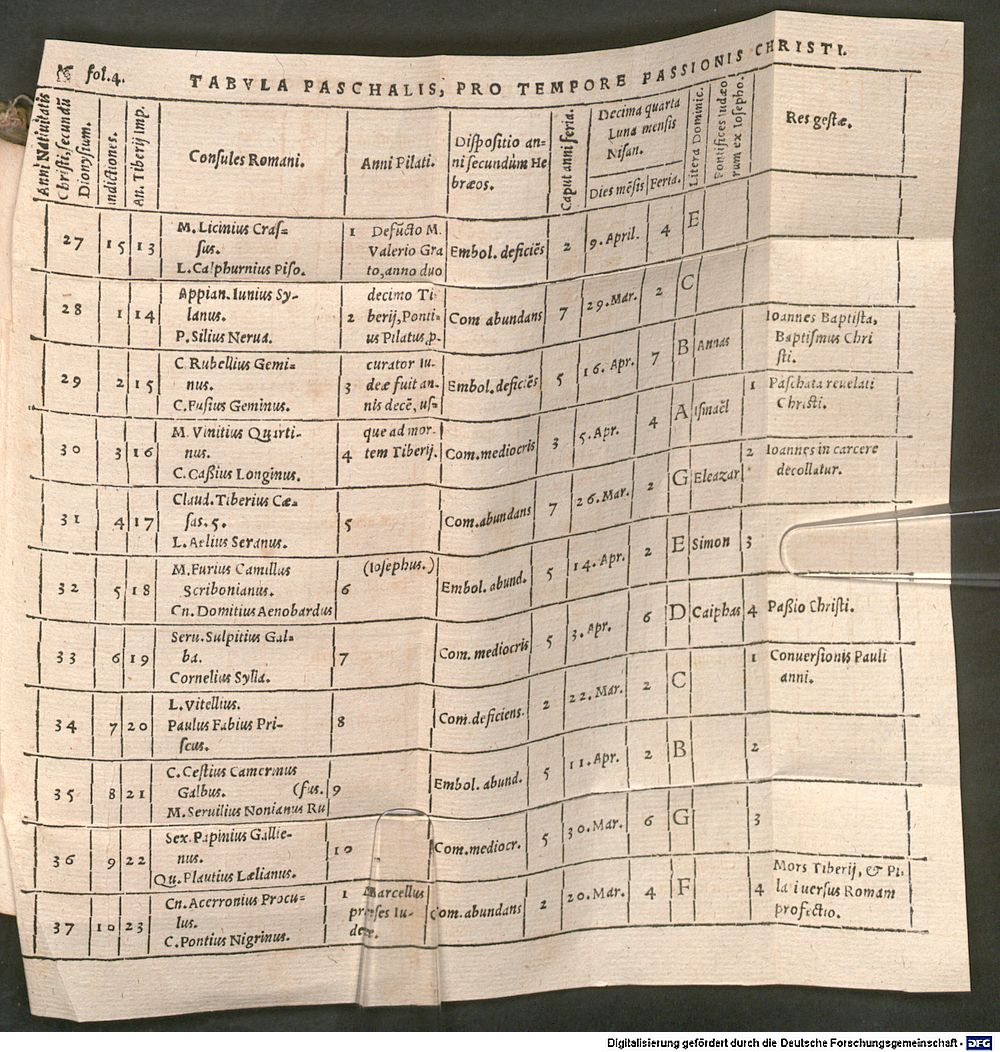 fol.4.
TABVLA PASCHALIS, PRO TEMPORE PASSIONIS CHRISTI.
Anni Natiuitatis
Christi, secundū
Dionysium.
Indictiones.
An. Tiberij Imp.
Consules Romani.
Anni Pilati.
Dispositio an=
ni secundùm He
bræos.
Caput anni feria.
Decima quarta
Luna mensis
Nisan.
Dies mēsis
Feria.
Litera Dominic.
Pontifices Iudæo
rum ex Iosepho.
Res gestæ.
27 15 13 M. Licinius Cras=
sus.
L. Calphurnius Piso.
1 Defūcto M.
Valerio Gra
to, anno duo
Embol. deficiēs 2 9. April. 4 E
28 1 14 Appian. Iunius Sy-
lanus.
P. Silius Nerua.
decimo Ti-
2 berij, Ponti-
us Pilatus, p-
Com abundans 7 29. Mar. 2 C
29 2 15 C. Rubellius Gemi=
nus.
C. Fusius Geminus.
curator Iu-
3 deæ fuit an-
nis decē, us=
Embol. deficiēs 5 16. Apr. 7 B Annas
Ioannes Baptista,
Baptismus Chri
sti.
30 3 16 M. Vinitius Quarti-
nus.
C. Caßius Longinus.
que ad mor-
4 tem Tiberij.
Com. mediocris 3 5. Apr. 4 A Ismaël
1 Paschata reuelati
Christi.
31 4 17 Claud. Tiberius Cæ-
sas. 5.
L. Aelius Seranus.
5
Com. abundans 7 26. Mar. 2 G Eleazar
2 Ioannes in carcere
decollatur.
32 5 18 M. Furius Camillus
Scribonianus.
Cn. Domitius Aenobardus
(Iosephus.)
6
Embol. abund. 5 14. Apr. 2 E Simon 3
33 6 19 Seru. Sulpitius Gal-
ba.
Cornelius Sylla.
7
Com. mediocris 5 3. Apr. 6 D Caiphas 4 Paßio Christi.
34 7 20 L. Vitellius.
Paulus Fabius Pri-
scus.
8
Com. deficiens. 2 22. Mar. 2 C
1 Conuersionis Pauli
anni.
35 8 21 C. Cestius Camerinus
Galbus. (fus.
M. Seruilius Nonianus Ru
9
Embol. abund. 5 11. Apr. 2 B 2
36 9 22 Sex. Papinius Gallie-
nus.
Qu. Plautius Lælianus.
10
Com. mediocr. 5 30. Mar. 6 G 3
37 10 23 Cn. Acerronius Procu-
lus.
C. Pontius Nigrinus.
1 Marcellus
præses Iu-
deæ.
Com. abundans 2 20. Mar. 4 F
Mors Tiberij, & Pi-
4 lati uersus Romam
profectio.
Digitalisierung gefördert durch die Deutsche Forschungsgemeinschaft - DFG